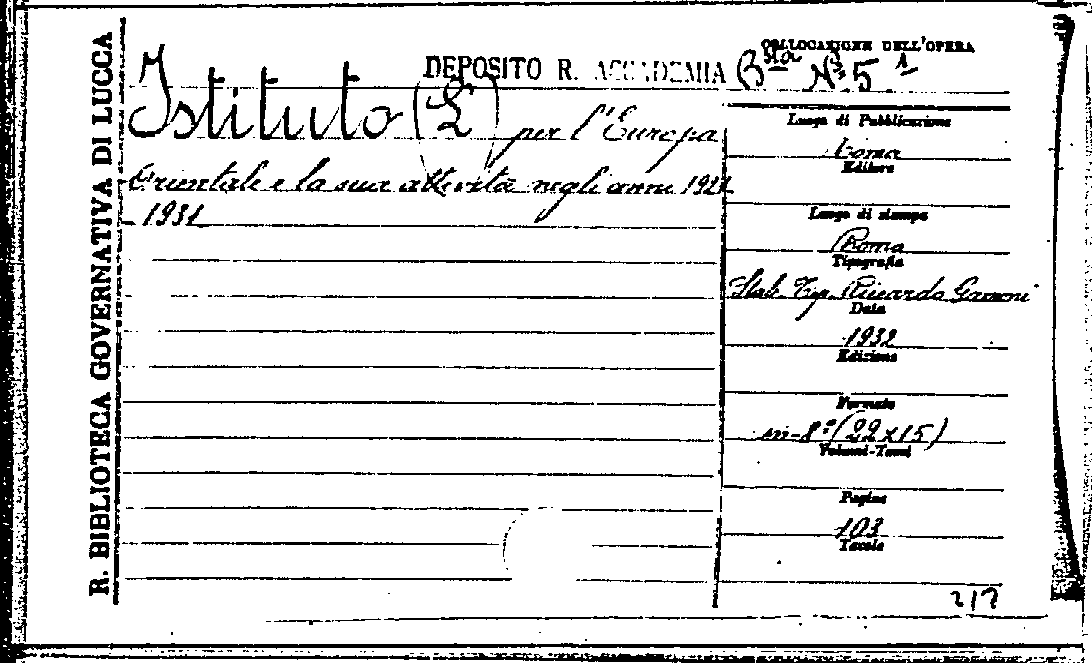 R. BIBLIOTECA GOVERNATIVA DI LUCCA
DEPOSITO R. ACCADEMIA
COLLOCAZIONE DELL'OPERA
Bta N. 5 A
Istituto (L') per l'Europa
Orientale e la sua attività negli anni 1921
-1931
Luogo di Pubblicazione
Roma
Editore
Luogo di stampa
Roma
Tipografia
Stab. Tip. Riccardo Garroni
Data
1932
Edizione
Formato
in-8° (22x15)
Volumi-Tomi
Pagine
103
Tavole
217